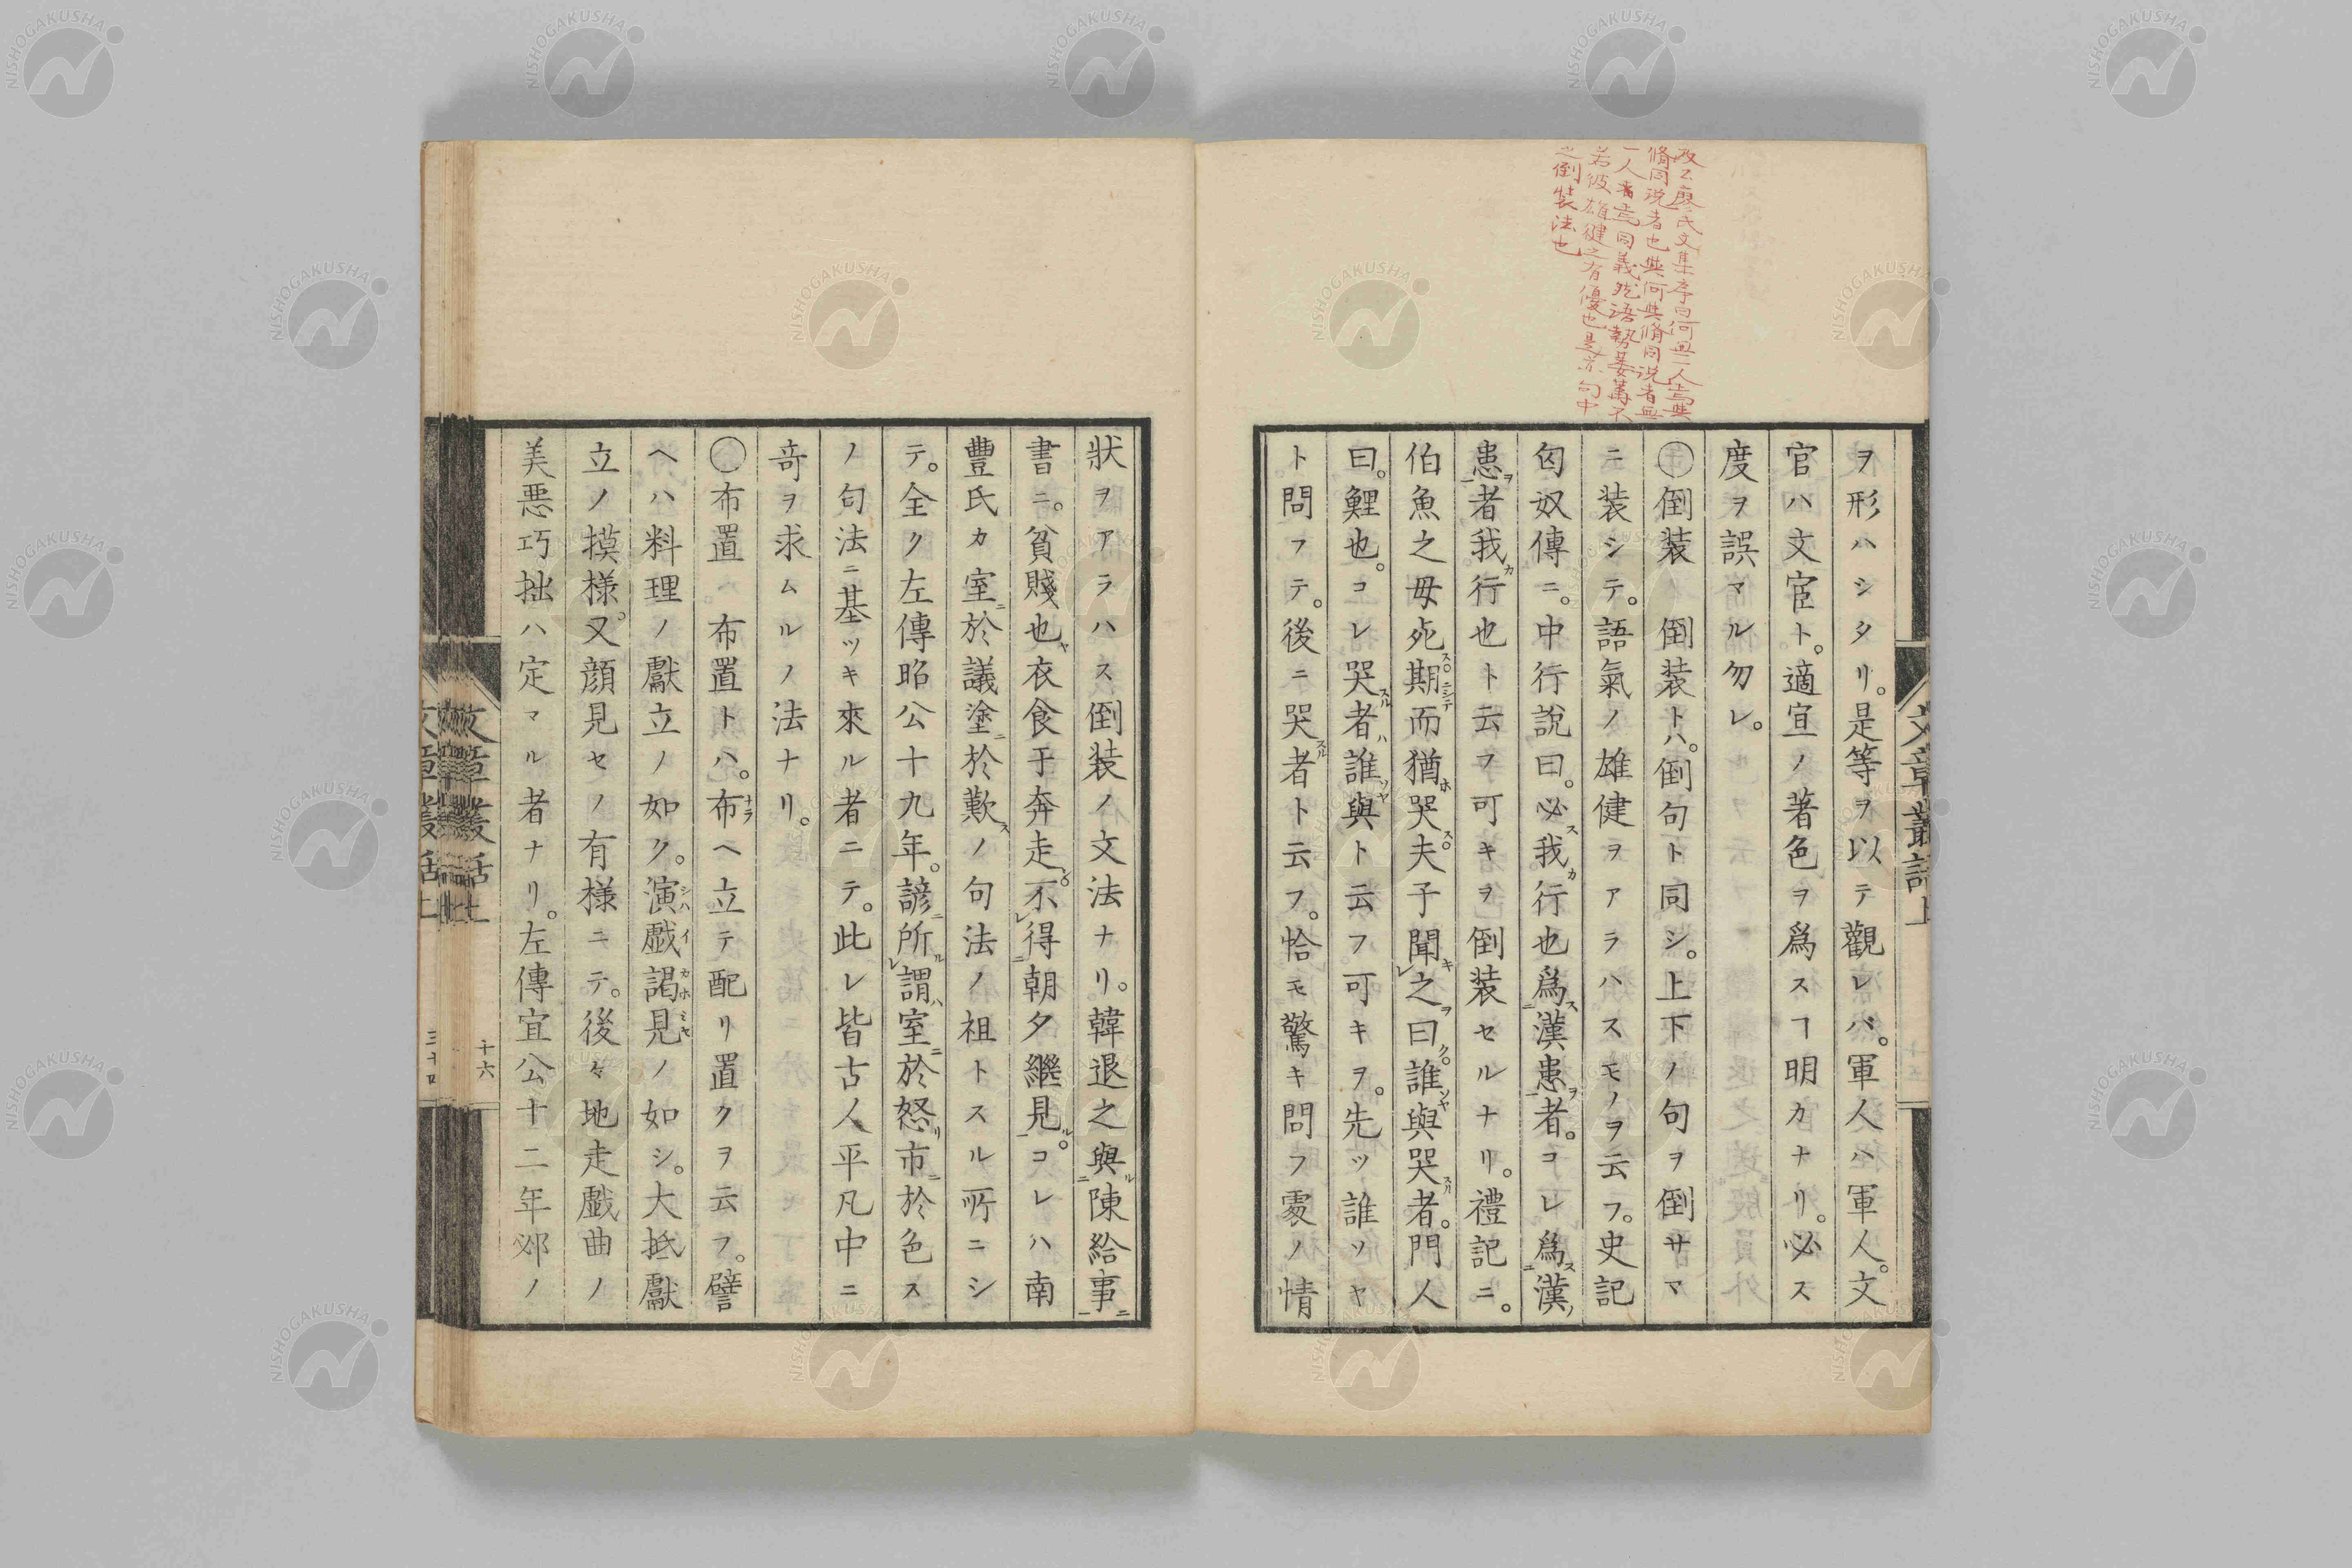 文章叢話上
ヲ形ハシタリ。是等ヲ以テ觀レバ。軍人ハ軍人。文
官ハ文官ト。適宜ノ著色ヲ爲スヿ明カナリ。必ス
度ヲ誤マル勿レ。
○倒装 倒装トハ。倒句ト同シ。上下ノ句ヲ倒サマ
ニ装シテ。語氣ノ雄健ヲアラハスモノヲ云フ。史記
匈奴傳ニ。中行說曰。必我行也爲漢患者。コレ爲漢
患者我行也ト云フ可キヲ倒装セルナリ。禮記ニ。
伯魚之母死期而猶哭夫子聞之曰誰與哭者。門人
曰。鯉也。コレ哭者誰與ト云フ可キヲ。先ツ誰ソヤ
ト問フテ。後ニ哭者ト云フ。恰モ驚キ問フ處ノ情
狀ヲアラハス倒装ノ文法ナリ。韓退之與陳給事
書ニ。貧賤也衣食于奔走。不得朝夕繼見。コレハ南
豐氏カ室於議塗於歎ノ句法ノ祖トスル所ニシ
テ。全ク左傳昭公十九年。諺所謂室於怒市於色ス
ノ句法ニ基ツキ來ル者ニテ。此レ皆古人平凡中ニ
奇ヲ求ムルノ法ナリ。
○布置 布置トハ。布ヘ立テ配リ置クヲ云フ。譬
ヘハ料理ノ獻立ノ如ク。演戯謁見ノ如シ。大抵獻
立ノ摸様。又顔見セノ有様ニテ。後々地走戯曲ノ
美悪巧拙ハ定マル者ナリ。左傳宣公十二年邲ノ
文章叢話上
十六
修同説者也無何無修同説者無
若彼雄健之有優也是亦句中
之倒装法也
NISHOGAKUSHA